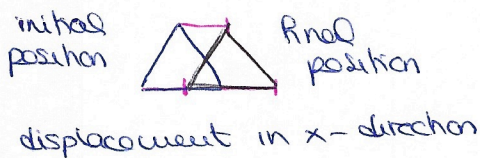 initial
position
final
position
displacement in x-direction